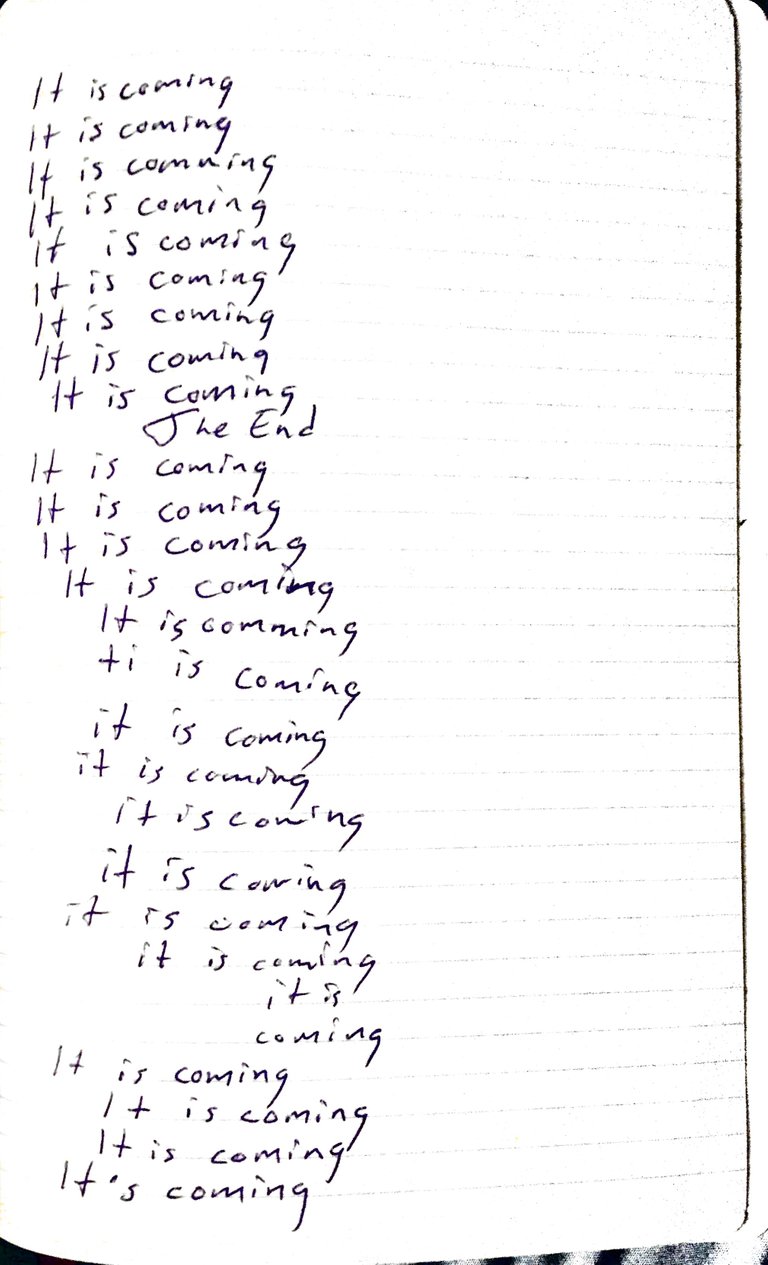 It is coming
It is coming
It is comming
It is coming
It is coming
It is coming
It is coming
It is coming
It is coming
The End
It is coming
It is coming
It is coming
It is coming
It is comming
ti is coming
it is coming
it is coming
it is coming
it is coming
it is coming
it is coming
it is
coming
It is coming
It is coming
It is coming
It's coming